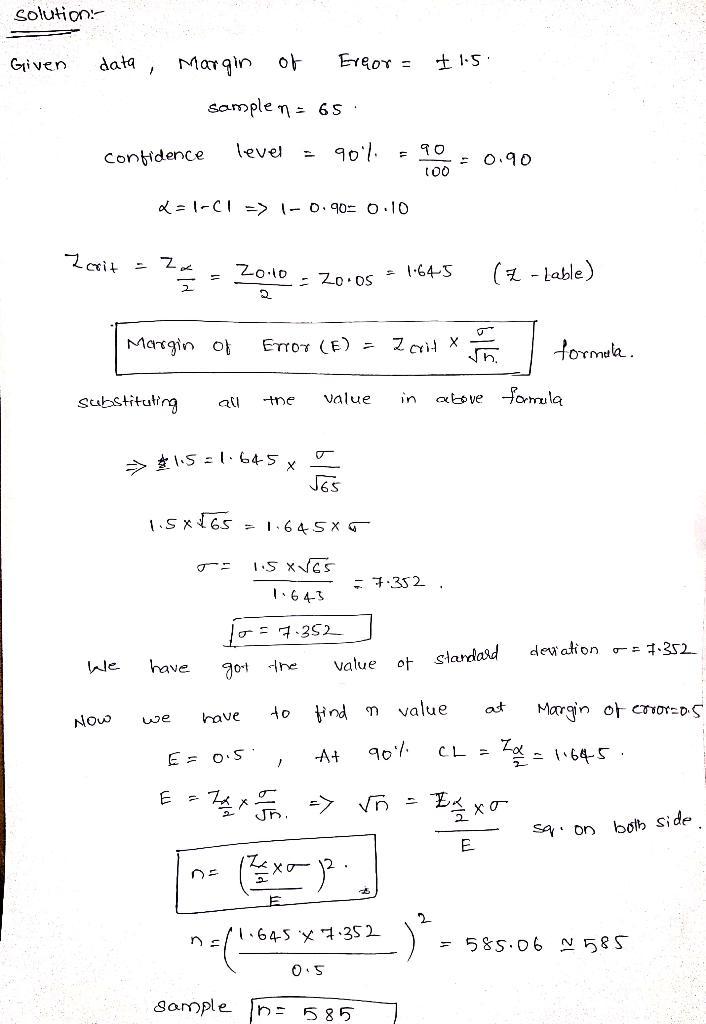 Solution:-
Given data, Margin of Error = ± 1.5.
sample n = 65.
confidence level = 90% = 90/100 = 0.90
α = 1-Cl => 1-0.90= 0.10
Zcrit = Zα/2 = Z0.10/2 = Z0.05 = 1.645 (Z-table)
Margin of Error (E) = Zcrit × σ/√n. formula.
substituting all the value in above formula
=> ± 1.5 = 1.645 × σ/√65
1.5×√65 = 1.645×σ
σ = 1.5×√65/1.643 = 7.352.
σ = 7.352
We have got the value of standard deviation σ = 7.352
Now we have to find n value at Margin of error=0.5
E = 0.5, At 90% CL = Zα/2 = 1.645.
E = Zα/2 × σ/√n. => √n = Zα/2 × σ/E sq. on both side.
n = (Zα/2 × σ/E)².
n = (1.645 × 7.352/0.5)² = 585.06 ≃ 585
sample n = 585